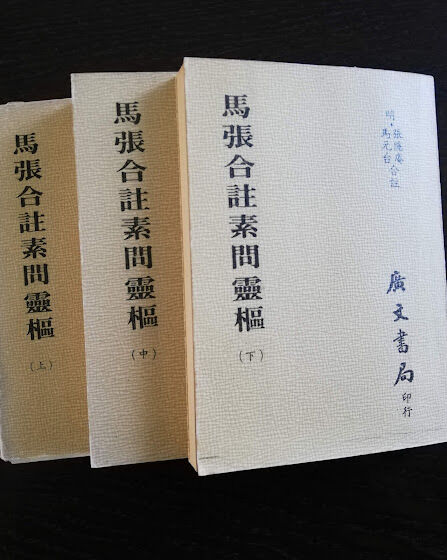 明·張隱庵
馬元台合註
馬張合註素問靈樞
(下)
廣文書局印行
馬張合註素問靈樞
(中)
馬張合註素問靈樞
(上)